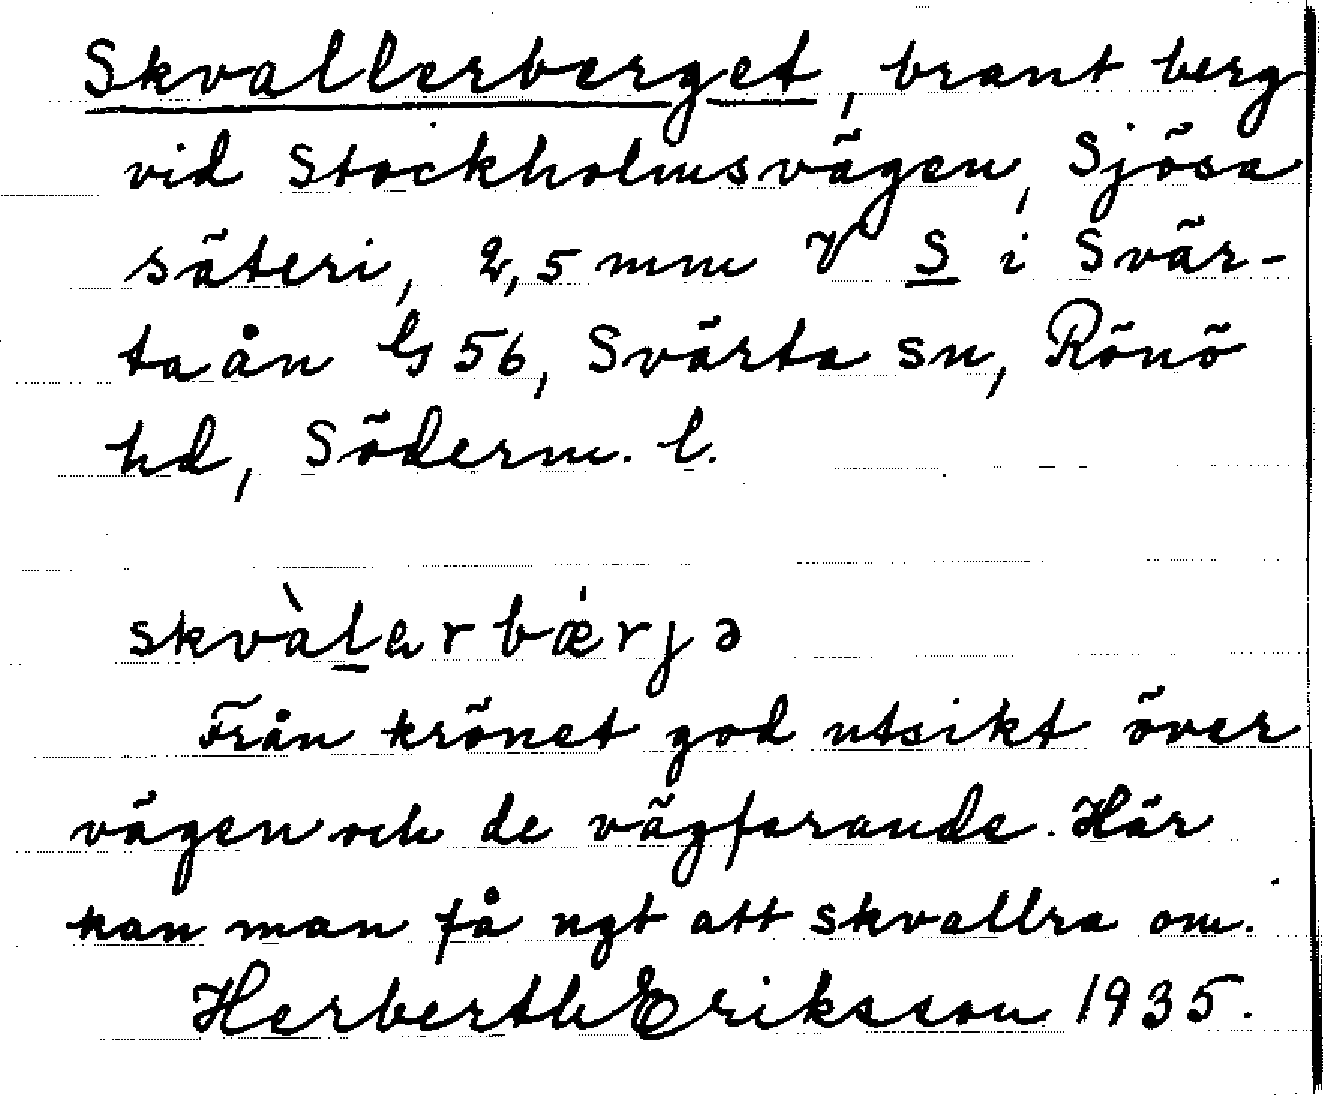 Skvallerberget, brant berg
vid Stockholmsvägen, Sjösa
säteri, 2,5 mm V S i Svär-
taån G 56, Svärta sn, Rönö
hd, Söderm. l.
skvàlarbærjə
Från krönet god utsikt över
vägen och de vägfarande. Här
kan man få ngt att skvallra om.
Herberth Eriksson 1935.